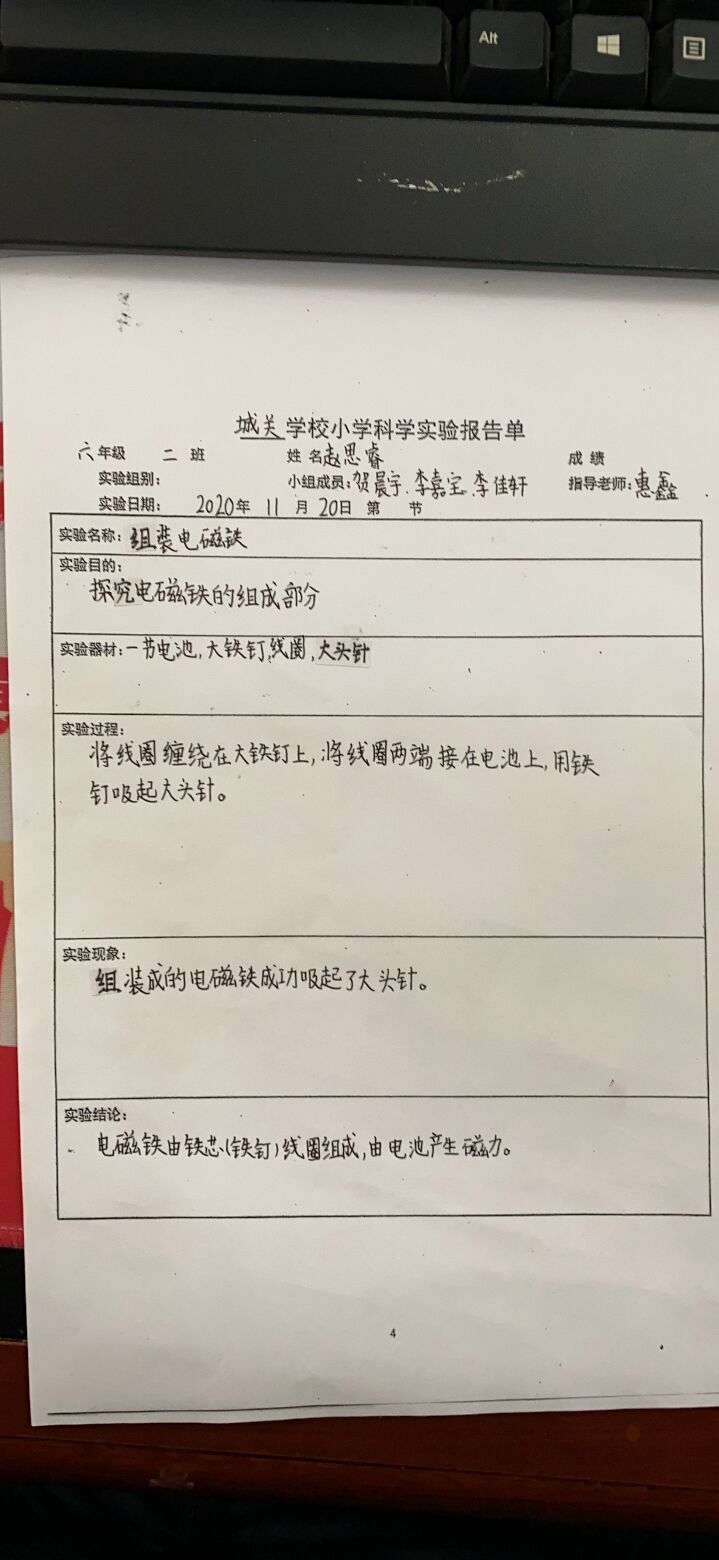 Alt
城关学校小学科学实验报告单
六年级 二 班 姓 名 赵思睿 成 绩
实验组别: 小组成员:贺晨宇.李嘉宝.李佳轩 指导老师:惠鑫
实验日期: 2020年 11 月 20日 第 节
实验名称: 组装电磁铁
实验目的:
探究电磁铁的组成部分
实验器材:一节电池,大铁钉,线圈,大头针
实验过程:
将线圈缠绕在大铁钉上,将线圈两端接在电池上,用铁
钉吸起大头针。
实验现象:
组装成的电磁铁成功吸起了大头针。
实验结论:
电磁铁由铁芯(铁钉)线圈组成,由电池产生磁力。
4